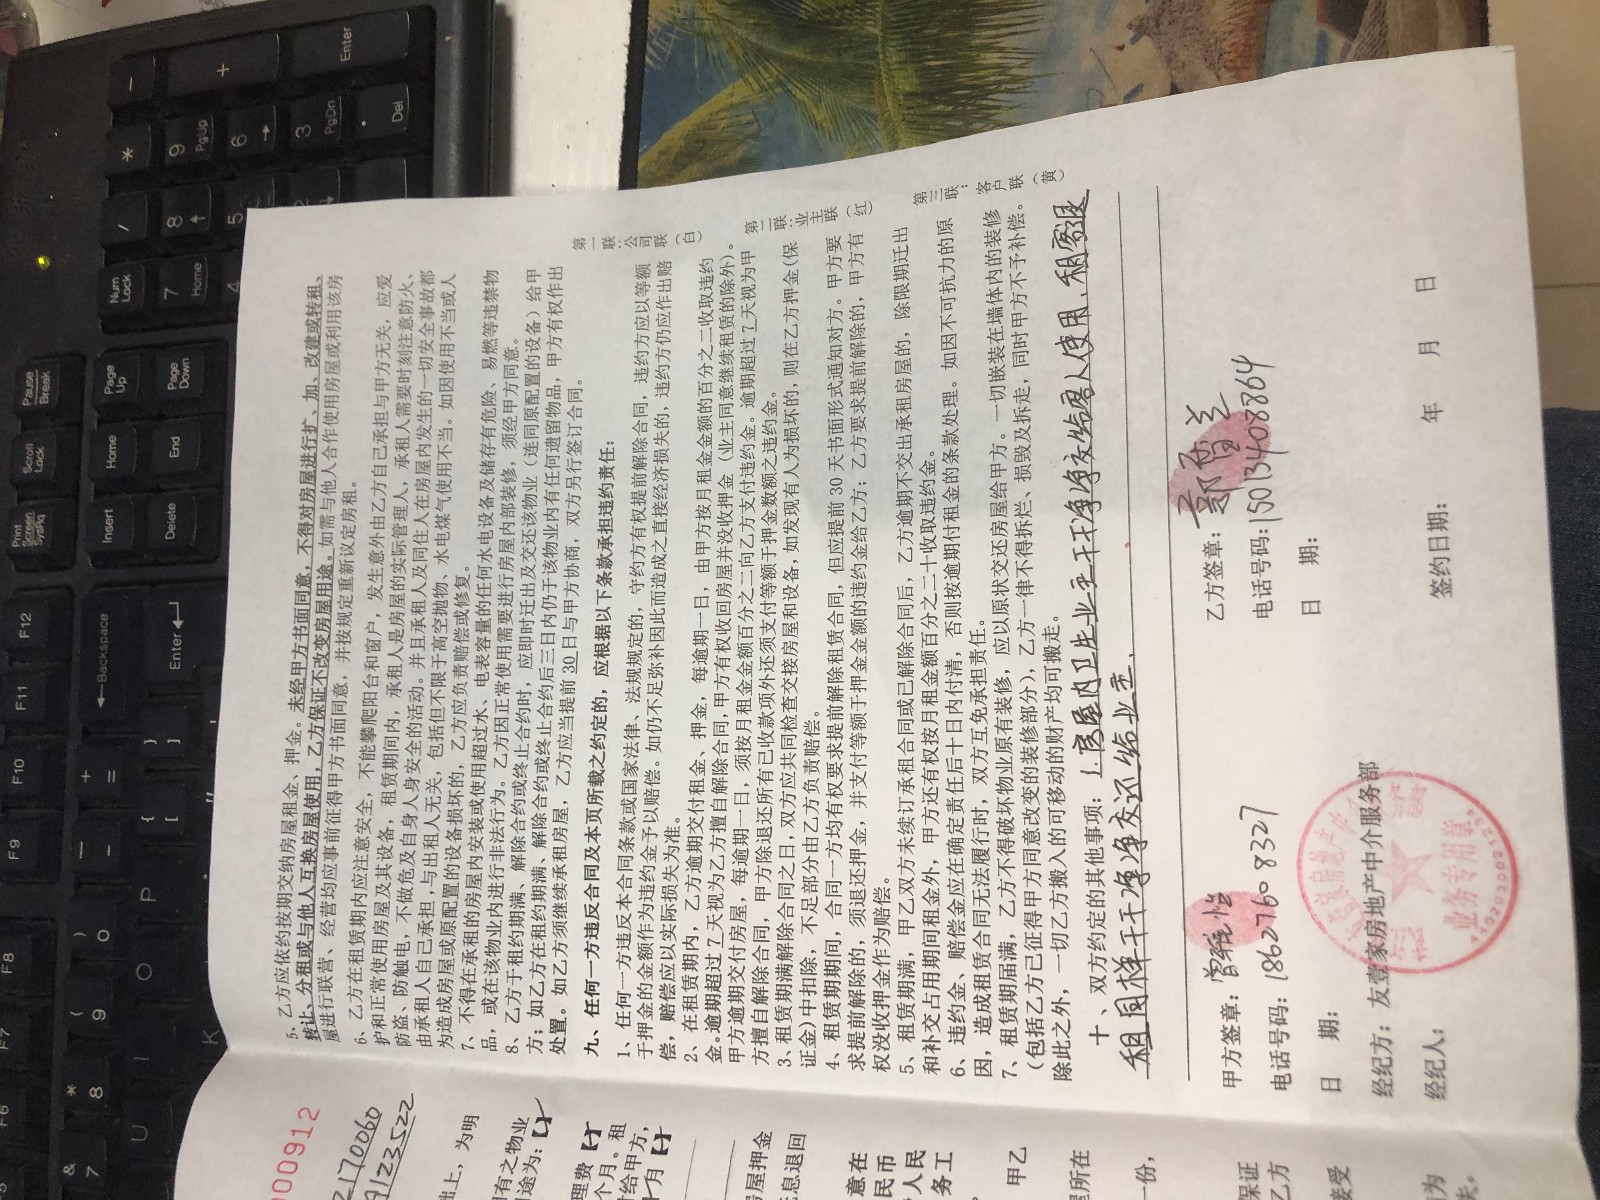 5、乙方应依约按期交纳房屋租金、押金。未经甲方书面同意，不得对房屋进行扩、加、改建或转租、
转让、分租或与他人互换房屋使用，乙方保证不改变房屋用途。如需与他人合作使用房屋或利用该房
屋进行联营、经营均应事前征得甲方书面同意，并按规定重新议定房租。
6、乙方在租赁期内应注意安全，不能攀爬阳台和窗户，发生意外由乙方自己承担与甲方无关，应爱
护和正常使用房屋及其设备，租赁期间内，承租人是房屋的实际管理人，承租人需要时刻注意防火、
防盗、防触电，不做危及自身人身安全的活动。并且承租人及同住人在房屋内发生的一切安全事故都
由承租人自己承担，与出租人无关，包括但不限于高空抛物、水电煤气使用不当。如因使用不当或人
为造成房屋或原配置的设备损坏的，乙方应负责赔偿或修复。
7、不得在承租的房屋内安装或使用超过水、电表容量的任何水电设备及储存有危险、易燃等违禁物
品，或在该物业内进行非法行为。乙方因正常使用需要进行房屋内部装修，须经甲方同意。
8、乙方于租约期满、解除合约或终止合约时，应即时迁出及交还该物业（连同原配置的设备）给甲
方；如乙方在租约期满、解除合约或终止合约后三日内仍于该物业内有任何遗留物品，甲方有权作出
处置。如乙方须继续承租房屋，乙方应当提前30日与甲方协商，双方另行签订合同。
九、任何一方违反合同及本页所载之约定的，应根据以下条款承担违约责任：
1、任何一方违反本合同条款或国家法律、法规规定的，守约方有权提前解除合同，违约方应以等额
于押金的金额作为违约金予以赔偿。如仍不足弥补因此而造成之直接经济损失的，违约方仍应作出赔
偿，赔偿应以实际损失为准。
2、在租赁期内，乙方逾期交付租金、押金，每逾期一日，由甲方按月租金金额的百分之二收取违约
金。逾期超过7天视为乙方擅自解除合同，甲方有权收回房屋并没收押金（业主同意继续租赁的除外）。
甲方逾期交付房屋，每逾期一日，须按月租金金额百分之二向乙方支付违约金。逾期超过7天视为甲
方擅自解除合同，甲方除退还所有已收款项外还须支付等额于押金数额之违约金。
3、租赁期满解除合同之日，双方应共同检查交接房屋和设备，如发现有人为损坏的，则在乙方押金(保
证金)中扣除，不足部分由乙方负责赔偿。
4、租赁期间，合同一方均有权要求提前解除租赁合同，但应提前30天书面形式通知对方。甲方要
求提前解除的，须退还押金，并支付等额于押金金额的违约金给乙方；乙方要求提前解除的，甲方有
权没收押金作为赔偿。
5、租赁期满，甲乙双方未续订承租合同或已解除合同后，乙方逾期不交出承租房屋的，除限期迁出
和补交占用期间租金外，甲方还有权按月租金额百分之二十收取违约金。
6、违约金、赔偿金应在确定责任后十日内付清，否则按逾期付租金的条款处理。如因不可抗力的原
因，造成租赁合同无法履行时，双方互免承担责任。
7、租赁期届满，乙方不得破坏物业原有装修，应以原状交还房屋给甲方。一切嵌装在墙体内的装修
（包括乙方已征得甲方同意改变的装修部分），乙方一律不得拆烂、损毁及拆走，同时甲方不予补偿。
除此之外，一切乙方搬入的可移动的财产均可搬走。
十、双方约定的其他事项：1.房屋内卫生业主干干净净交给客人使用，租客退
租同样干干净净交还给业主.
甲方签章：
乙方签章：
电话号码：18627608327
电话号码：15013408864
日 期：
日 期：
经纪方：友壹家房地产中介服务部
经纪人：
签约日期： 年 月 日
业务专用章
第一联：公司联（白）
第二联：业主联（红）
第三联：客户联（黄）
000912
22170060
9123522
出上，为明
有之物业
途为：【】
理费【】
个月。租
付给甲方，
个月【】
房屋押金
息退回
意在
民币
人民
务工
甲乙
屋所在
一份，
保证
乙方
接受
为
Print Screen SysRq
Scroll Lock
Pause Break
Insert
Home
Page Up
Delete
End
Page Down
Num Lock
/
*
-
7 Home
8
9 PgUp
+
4
5
6
3 PgDn
Enter
. Del
F6
F7
F8
F9
F10
F11
F12
& 7
* 8
( 9
) 0
+ =
Backspace
U
I
O
P
{ [
} ]
Enter
K